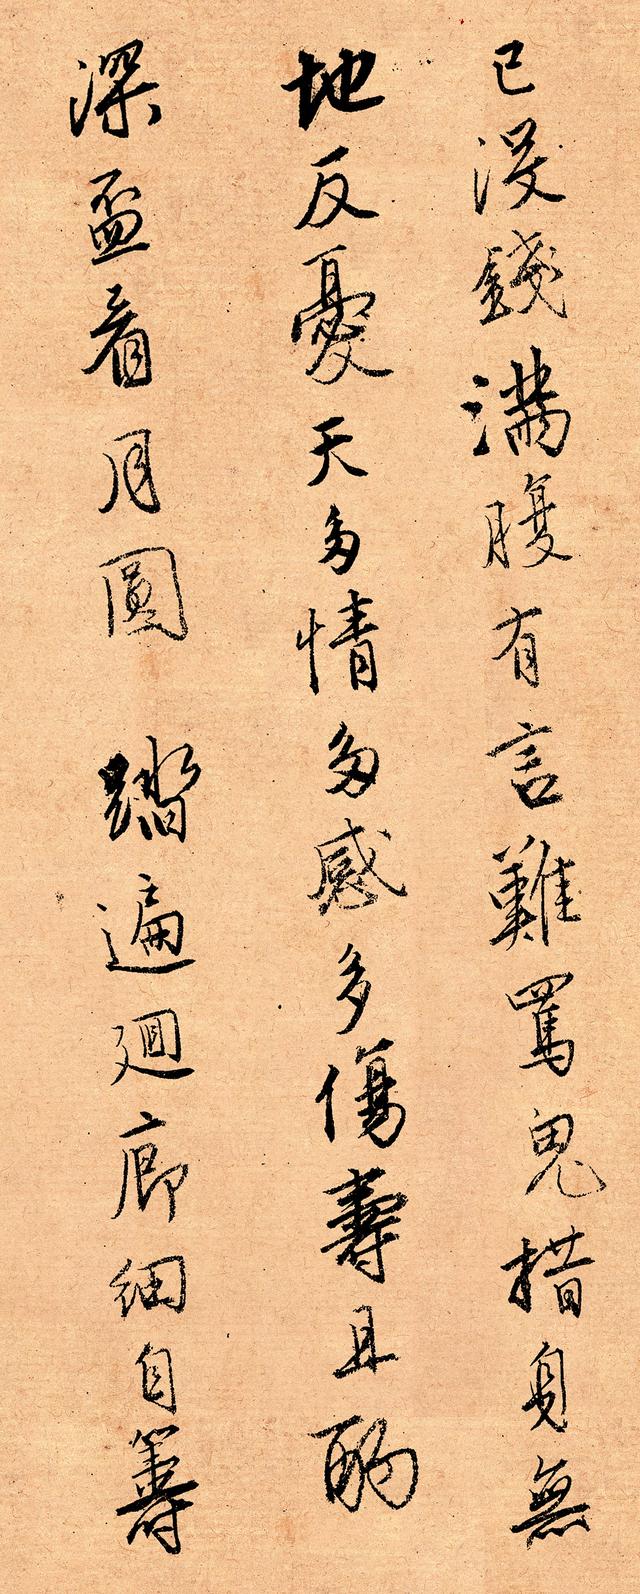 已沒錢滿腹有言難罵鬼措身無
地反憂天多情多感多傷壽且酌
深盃看月圓 踏遍迴廊細自籌